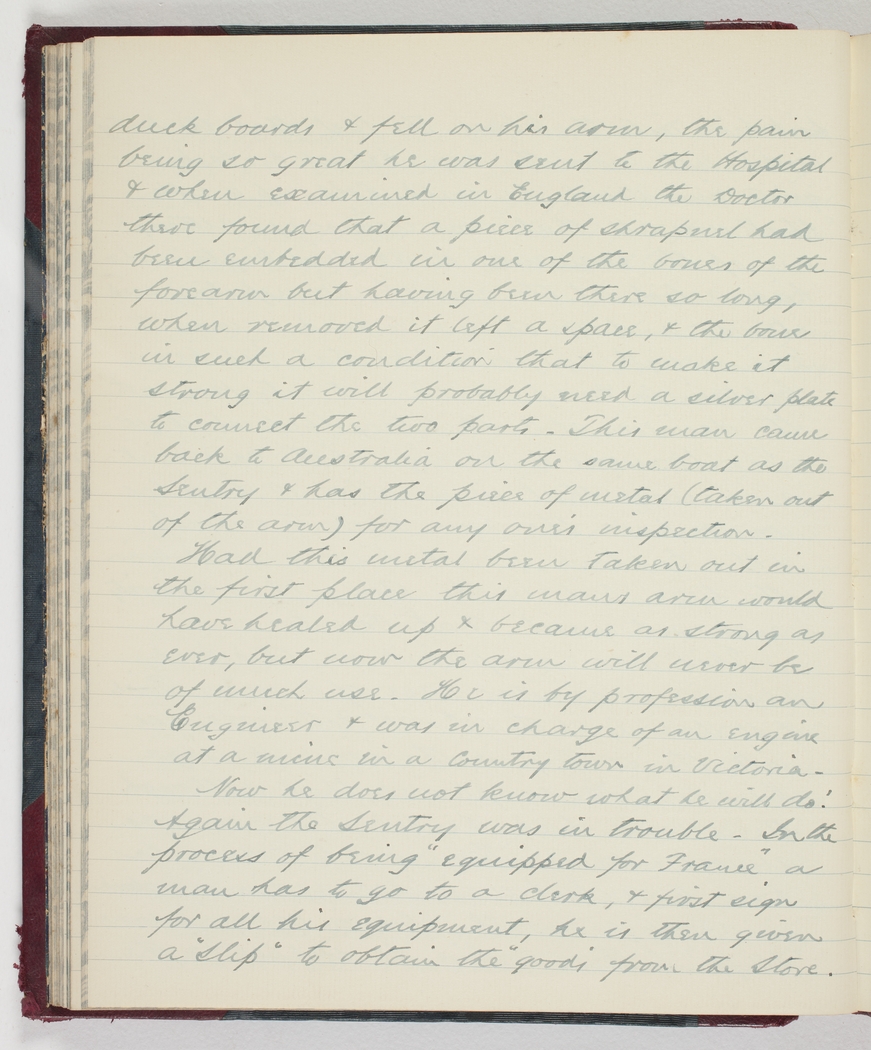 duck boards & fell on his arm, the pain
being so great he was sent to the Hospital
& when examined in England the Doctor
there found that a piece of shrapnel had
been embedded in one of the bones of the
forearm but having been there so long,
when removed it left a space, & the bone
in such a condition that to make it
strong it will probably need a silver plate
to connect the two parts - This man came
back to Australia on the same boat as the
Sentry & has the piece of metal (taken out
of the arm) for any one's inspection -
Had this metal been taken out in
the first place this mans arm would
have healed up & became as strong as
ever, but now the arm will never be
of much use - He is by profession an
Engineer & was in charge of an engine
at a mine in a Country town in Victoria -
Now he does not know what he will do!
Again the Sentry was in trouble - In the
process of being "equipped for France" a
man has to go to a clerk, & first sign
for all his equipment, he is then given
a "slip" to obtain the "goods from the Store.